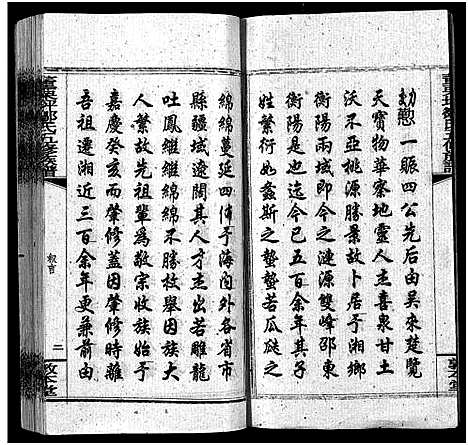 勅懃一賑四公先后由吴来楚覽
天寶物華察地靈人杰喜泉甘土
沃不亞桃源勝景故卜居于湘鄉
衡陽兩域即今之漣源雙峰邵東
衡陽是也迄今已五百余年其子
姓繁衍如螽斯之蟄蟄若瓜瓞之
綿綿蔓延四佈于海内外各省市
縣疆域遼闊其人才杰出若雕龍
吐鳳継継綿綿不勝枚舉因族大
人繁故先祖輩爲敬宗收族始于
嘉慶癸亥而肇修蓋因肇修時離
吾祖遷湘近三百余年更兼前由
敦本堂
二
敦本堂